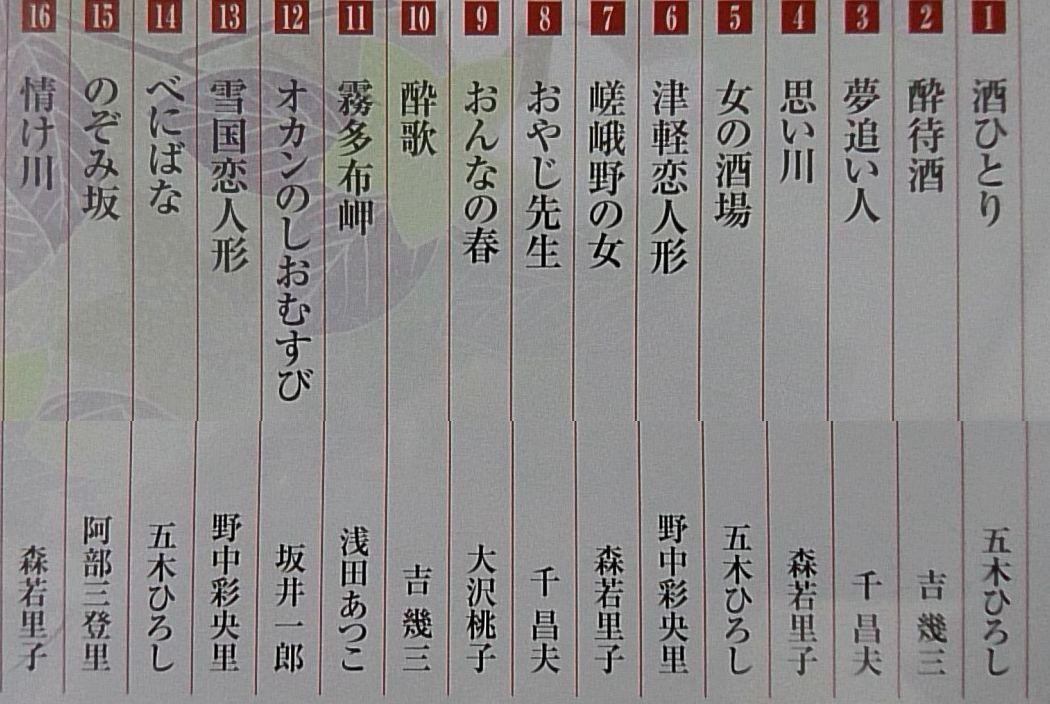 1 酒ひとり 五木ひろし
2 酔待酒 吉 幾三
3 夢追い人 千 昌夫
4 思い川 森若里子
5 女の酒場 五木ひろし
6 津軽恋人形 野中彩央里
7 嵯峨野の女 森若里子
8 おやじ先生 千 昌夫
9 おんなの春 大沢桃子
10 酔歌 吉 幾三
11 霧多布岬 浅田あつこ
12 オカンのしおむすび 坂井一郎
13 雪国恋人形 野中彩央里
14 べにばな 五木ひろし
15 のぞみ坂 阿部三登里
16 情け川 森若里子